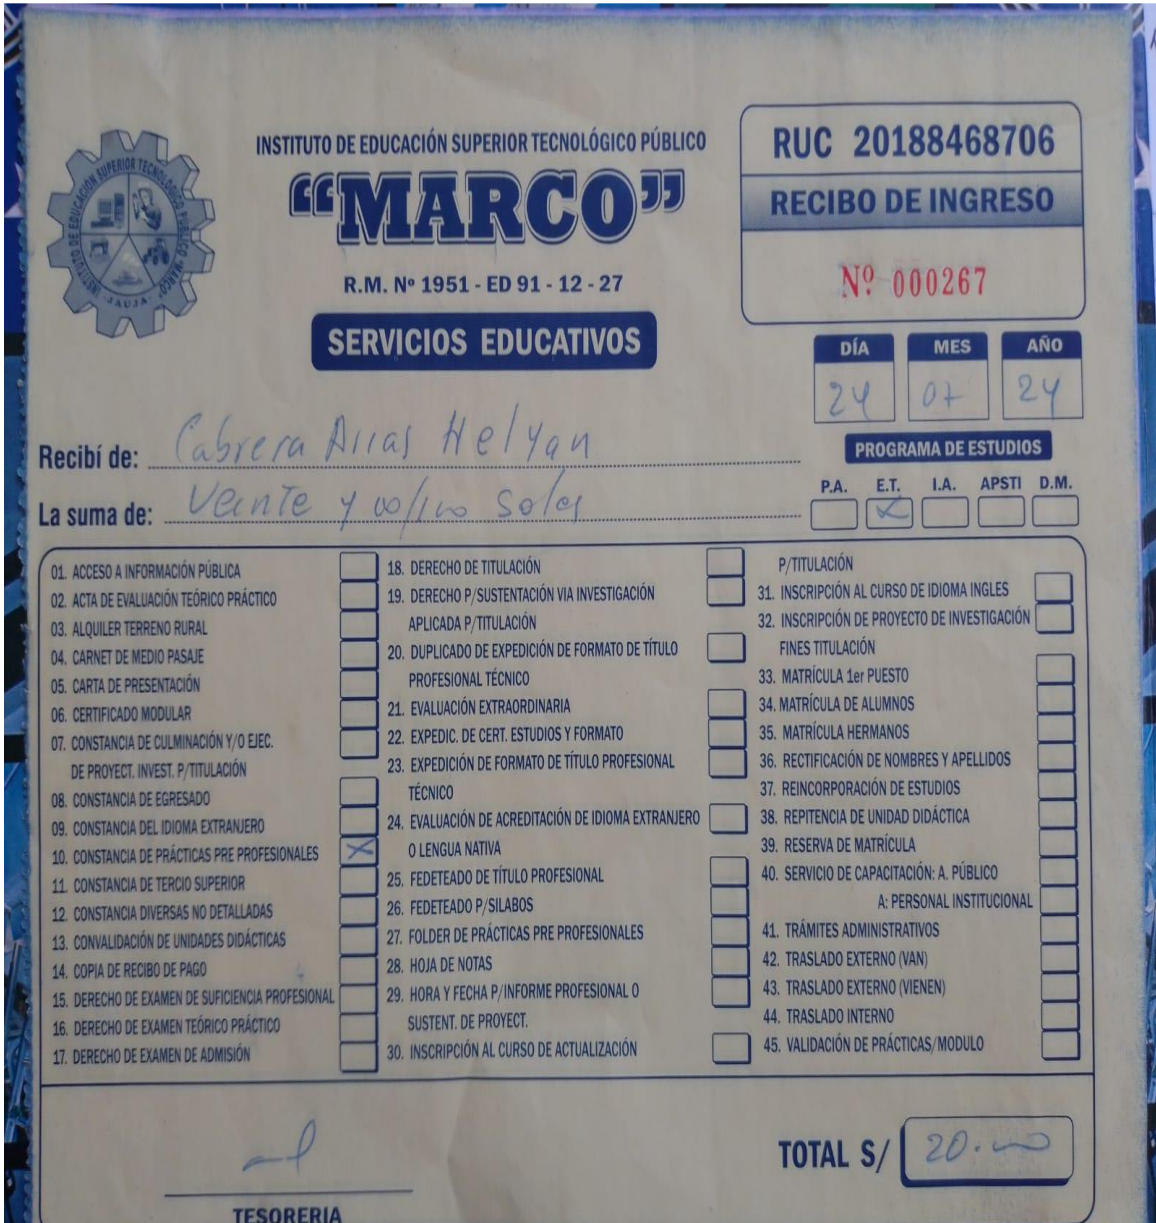 INSTITUTO DE EDUCACIÓN SUPERIOR TECNOLÓGICO PÚBLICO "MARCO"
- JAUJA -
INSTITUTO DE EDUCACIÓN SUPERIOR TECNOLÓGICO PÚBLICO
“MARCO”
R.M. Nº 1951 - ED 91 - 12 - 27
SERVICIOS EDUCATIVOS
RUC 20188468706
RECIBO DE INGRESO
Nº 000267
DÍA MES AÑO
24 07 24
Recibí de: Cabrera Arias Helyan
PROGRAMA DE ESTUDIOS
P.A. E.T. I.A. APSTI D.M.
La suma de: Veinte y 00/100 Soles
01. ACCESO A INFORMACIÓN PÚBLICA
02. ACTA DE EVALUACIÓN TEÓRICO PRÁCTICO
03. ALQUILER TERRENO RURAL
04. CARNET DE MEDIO PASAJE
05. CARTA DE PRESENTACIÓN
06. CERTIFICADO MODULAR
07. CONSTANCIA DE CULMINACIÓN Y/O EJEC.
DE PROYECT. INVEST. P/TITULACIÓN
08. CONSTANCIA DE EGRESADO
09. CONSTANCIA DEL IDIOMA EXTRANJERO
10. CONSTANCIA DE PRÁCTICAS PRE PROFESIONALES X
11. CONSTANCIA DE TERCIO SUPERIOR
12. CONSTANCIA DIVERSAS NO DETALLADAS
13. CONVALIDACIÓN DE UNIDADES DIDÁCTICAS
14. COPIA DE RECIBO DE PAGO
15. DERECHO DE EXAMEN DE SUFICIENCIA PROFESIONAL
16. DERECHO DE EXAMEN TEÓRICO PRÁCTICO
17. DERECHO DE EXAMEN DE ADMISIÓN
18. DERECHO DE TITULACIÓN
19. DERECHO P/SUSTENTACIÓN VIA INVESTIGACIÓN
APLICADA P/TITULACIÓN
20. DUPLICADO DE EXPEDICIÓN DE FORMATO DE TÍTULO
PROFESIONAL TÉCNICO
21. EVALUACIÓN EXTRAORDINARIA
22. EXPEDIC. DE CERT. ESTUDIOS Y FORMATO
23. EXPEDICIÓN DE FORMATO DE TÍTULO PROFESIONAL
TÉCNICO
24. EVALUACIÓN DE ACREDITACIÓN DE IDIOMA EXTRANJERO
O LENGUA NATIVA
25. FEDETEADO DE TÍTULO PROFESIONAL
26. FEDETEADO P/SILABOS
27. FOLDER DE PRÁCTICAS PRE PROFESIONALES
28. HOJA DE NOTAS
29. HORA Y FECHA P/INFORME PROFESIONAL O
SUSTENT. DE PROYECT.
30. INSCRIPCIÓN AL CURSO DE ACTUALIZACIÓN
P/TITULACIÓN
31. INSCRIPCIÓN AL CURSO DE IDIOMA INGLES
32. INSCRIPCIÓN DE PROYECTO DE INVESTIGACIÓN
FINES TITULACIÓN
33. MATRÍCULA 1er PUESTO
34. MATRÍCULA DE ALUMNOS
35. MATRÍCULA HERMANOS
36. RECTIFICACIÓN DE NOMBRES Y APELLIDOS
37. REINCORPORACIÓN DE ESTUDIOS
38. REPITENCIA DE UNIDAD DIDÁCTICA
39. RESERVA DE MATRÍCULA
40. SERVICIO DE CAPACITACIÓN: A. PÚBLICO
A: PERSONAL INSTITUCIONAL
41. TRÁMITES ADMINISTRATIVOS
42. TRASLADO EXTERNO (VAN)
43. TRASLADO EXTERNO (VIENEN)
44. TRASLADO INTERNO
45. VALIDACIÓN DE PRÁCTICAS/MODULO
TOTAL S/ 20.00
TESORERIA